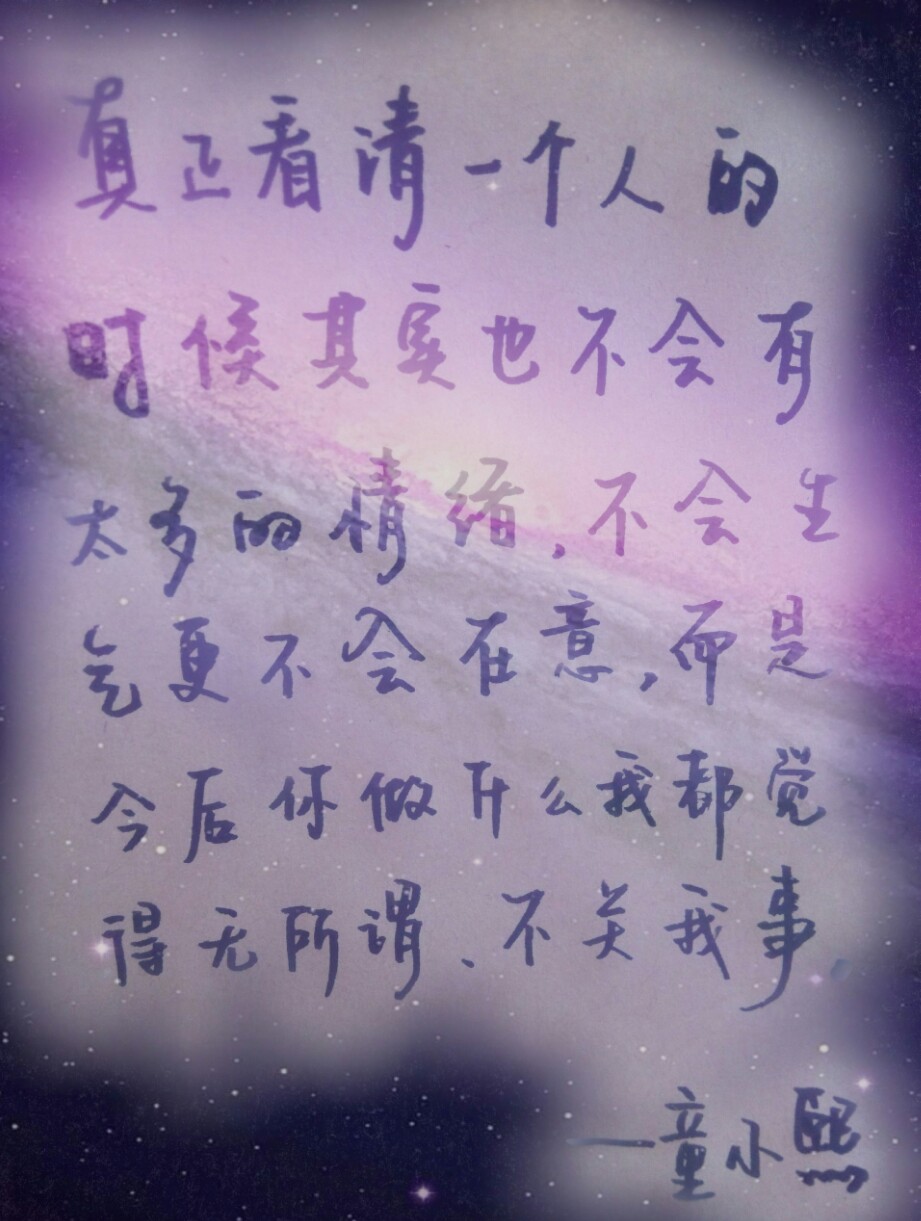 真正看清一个人的
时候其实也不会有
太多的情绪，不会生
气更不会在意，而是
今后你做什么我都觉
得无所谓、不关我事。
—童小熙